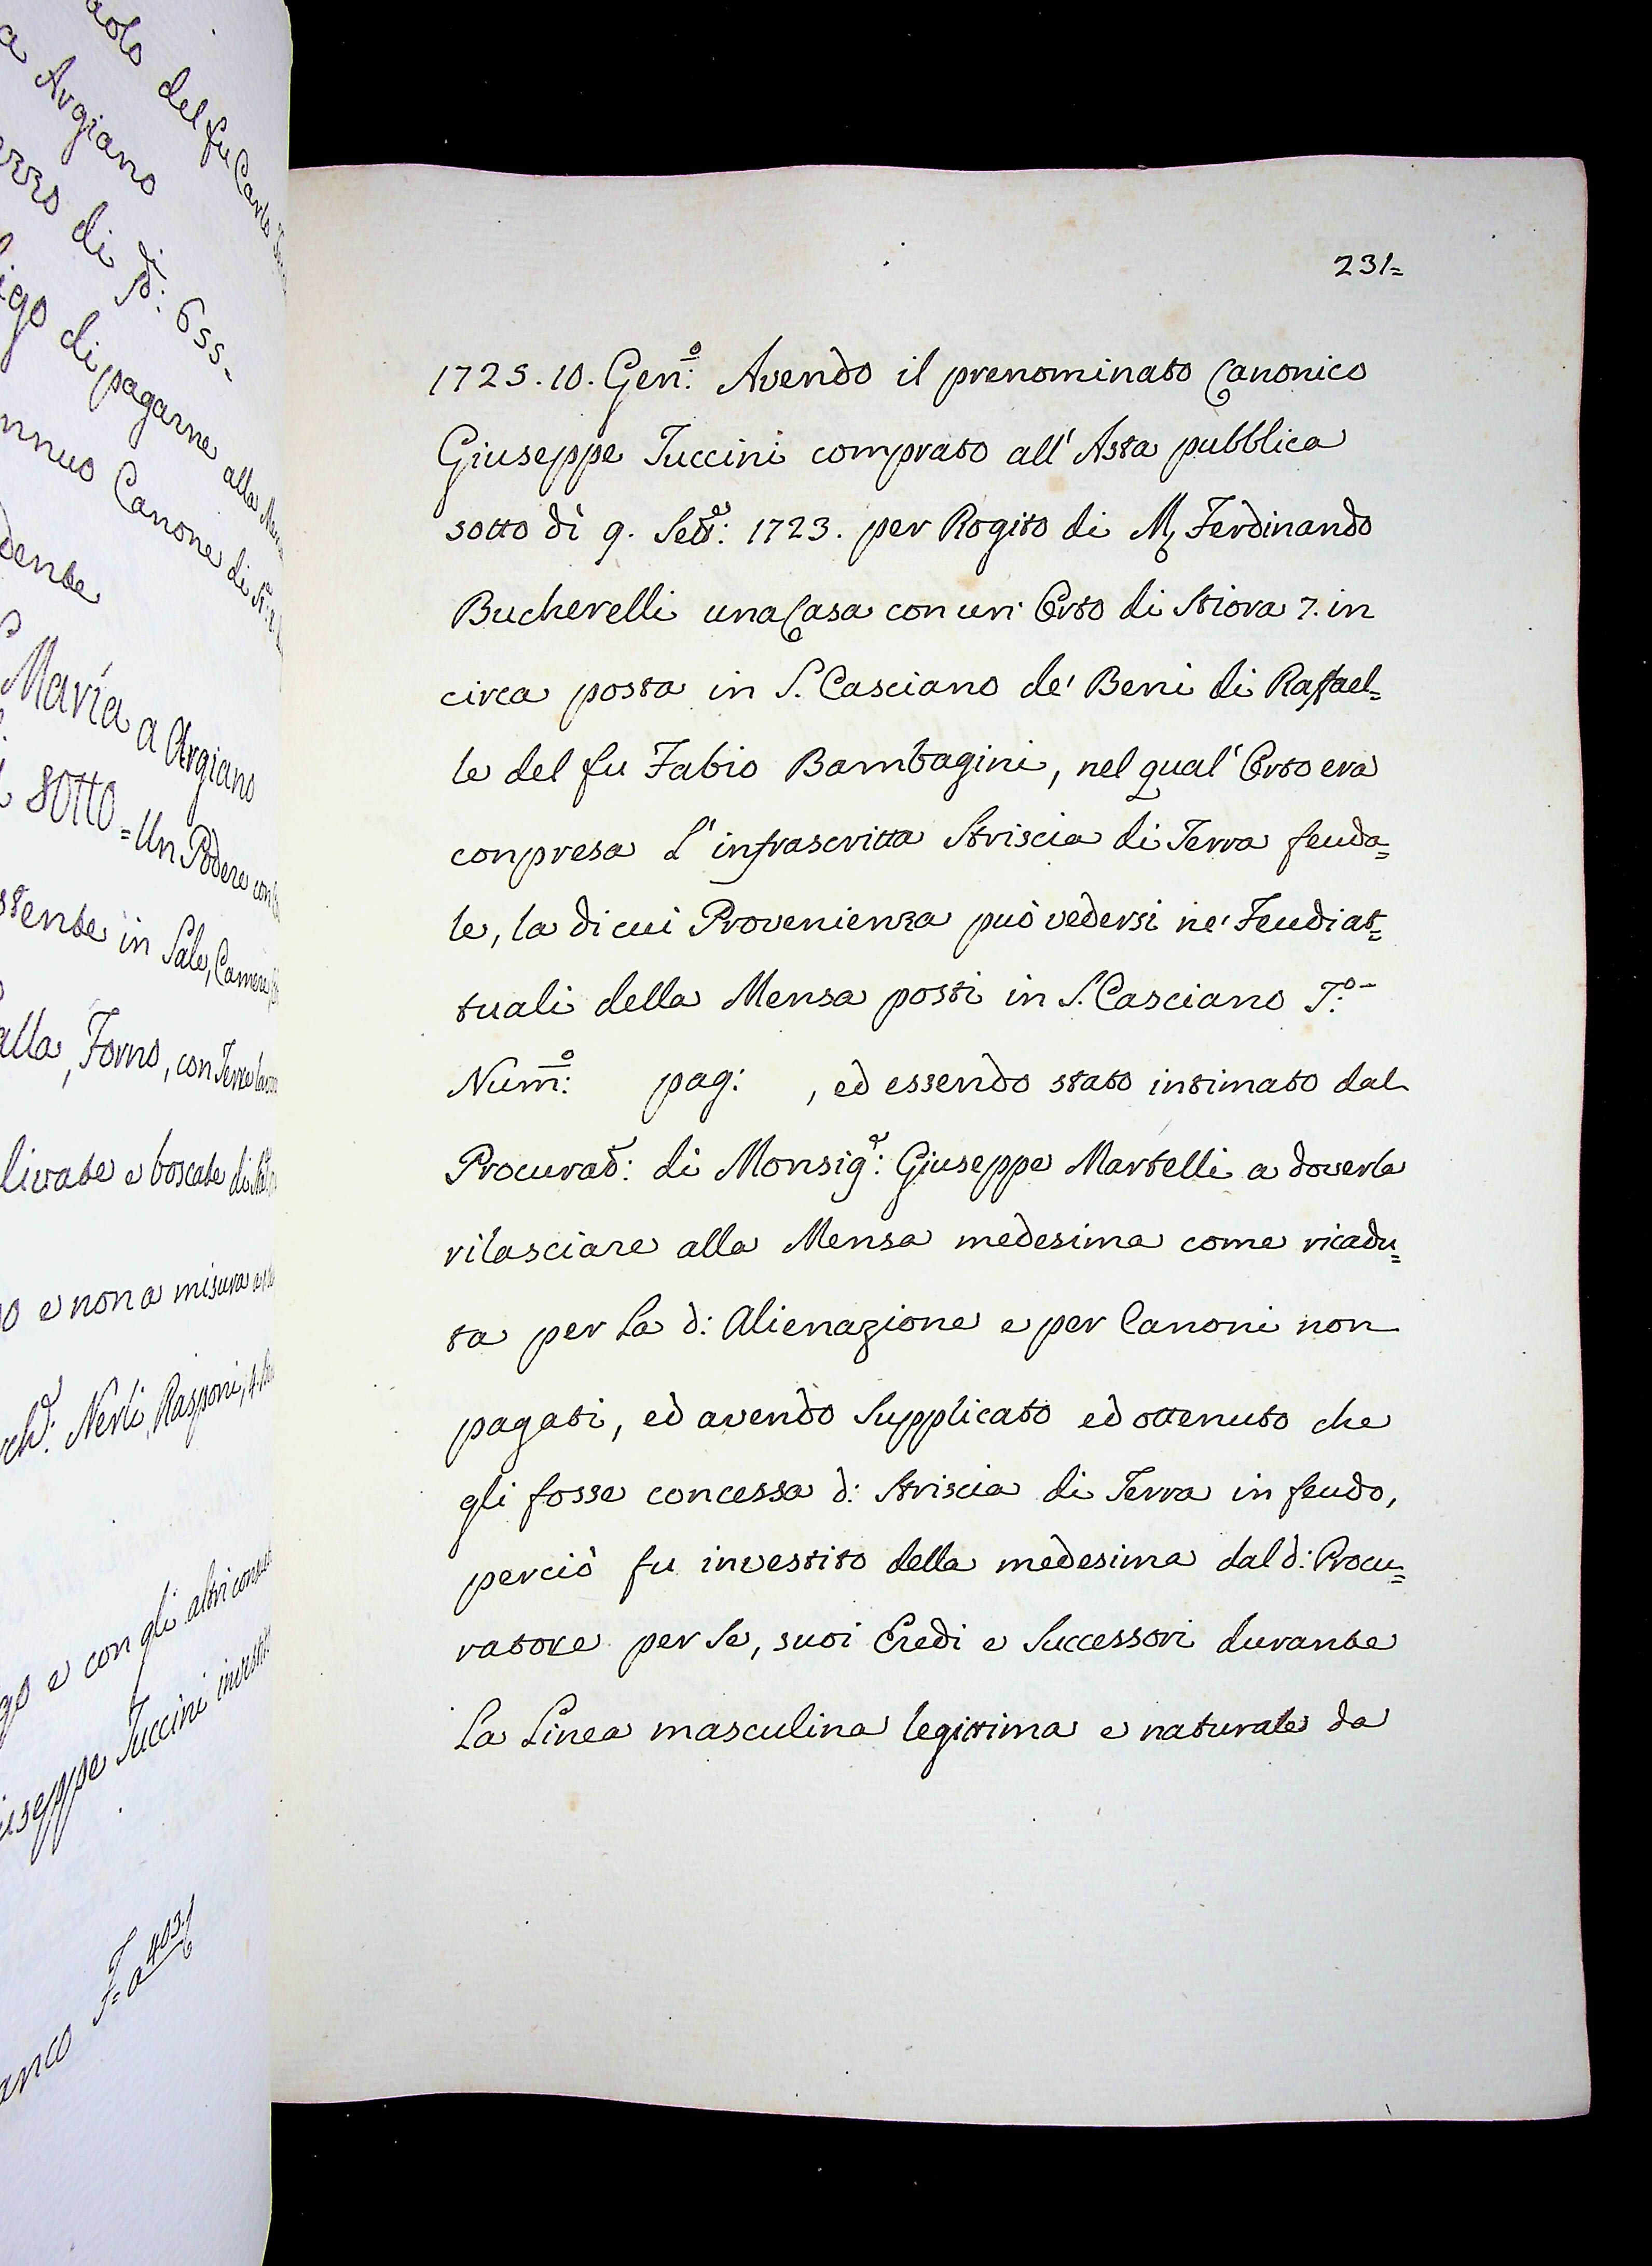 aolo del fu Carlo
a Argiano
ezzo di di
igo di pagarne alla
nnuo Canone di
dente
Maria a Argiano
sotto = Un Podere con
stente in Sale, Camere
alla, Forno, con Terre
livate e boscate di
o e non a misura
Nerli, Rasponi,
go e con gli altri
useppe Tuccini
anco
231=
1725. 10. Gen:º Avendo il prenominato Canonico
Giuseppe Tuccini comprato all' Asta pubblica
sotto dì 9. Setẽ: 1723. per Rogito di M Ferdinando
Bucherelli una Casa con un' Orto di Stiora 7. in
circa posta in S. Casciano de' Beni di Raffael=
le del fu Fabio Bambagini, nel qual' Orto era
conpresa l' infrascritta Striscia di Terra feuda=
le, la di cui Provenienza può vedersi ne' Feudiat=
tuali della Mensa posti in S. Casciano T:º
Num̃:º pag: , ed essendo stato intimato dal
Procurat:e di Monsig:e Giuseppe Martelli a doverla
rilasciare alla Mensa medesima come ricadu=
ta per la d: Alienazione e per Canoni non
pagati, ed avendo Supplicato ed ottenuto che
gli fosse concessa d: Striscia di Terra in feudo,
perciò fu investito della medesima dal d: Procu=
ratore per Se, suoi Eredi e Successori durante
La Linea masculina legittima e naturale da